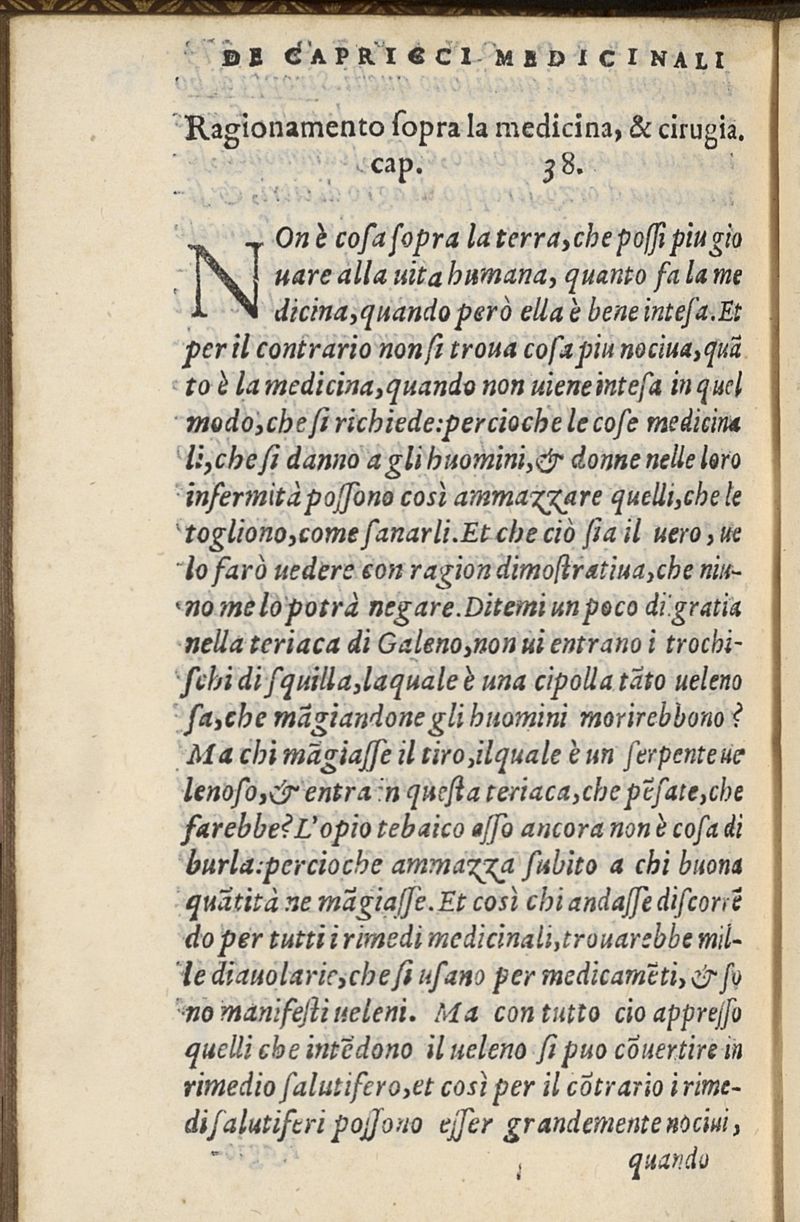 DE CAPRICCI MEDICINALI
Ragionamento ſopra la medicina, & cirugia.
cap. 38.
NOn è coſa ſopra la terra, che poſſi piu gio
uare alla uita humana, quanto fa la me
dicina, quando però ella è bene inteſa. Et
per il contrario non ſi troua coſa piu nociua, quã
to è la medicina, quando non uiene inteſa in quel
modo, che ſi richiede: percioche le coſe medicina
li, che ſi danno a gli huomini, & donne nelle loro
infermità poſſono così ammazzare quelli, che le
togliono, come ſanarli. Et che ciò ſia il uero, ue
lo farò uedere con ragion dimoſtratiua, che niu-
no me lo potrà negare. Ditemi un poco di gratia
nella teriaca di Galeno, non ui entrano i trochi-
ſchi di ſquilla, laquale è una cipolla tãto ueleno
ſa, che mãgiandone gli huomini morirebbono?
Ma chi mãgiaſſe il tiro, ilquale è un ſerpente ue
lenoſo, & entra in queſta teriaca, che pẽſate, che
farebbe? L'opio tebaico aſſo ancora non è coſa di
burla: percioche ammazza ſubito a chi buona
quãtità ne mãgiaſſe. Et così chi andaſſe diſcorrẽ
do per tutti i rimedi medicinali, trouarebbe mil-
le diauolarie, che ſi uſano per medicamẽti, & ſo
no manifeſti ueleni. Ma con tutto cio appreſſo
quelli che intẽdono il ueleno ſi puo cõuertire in
rimedio ſalutifero, et così per il cõtrario i rime-
di ſalutiferi poſſono eſſer grandemente nociui,
quando